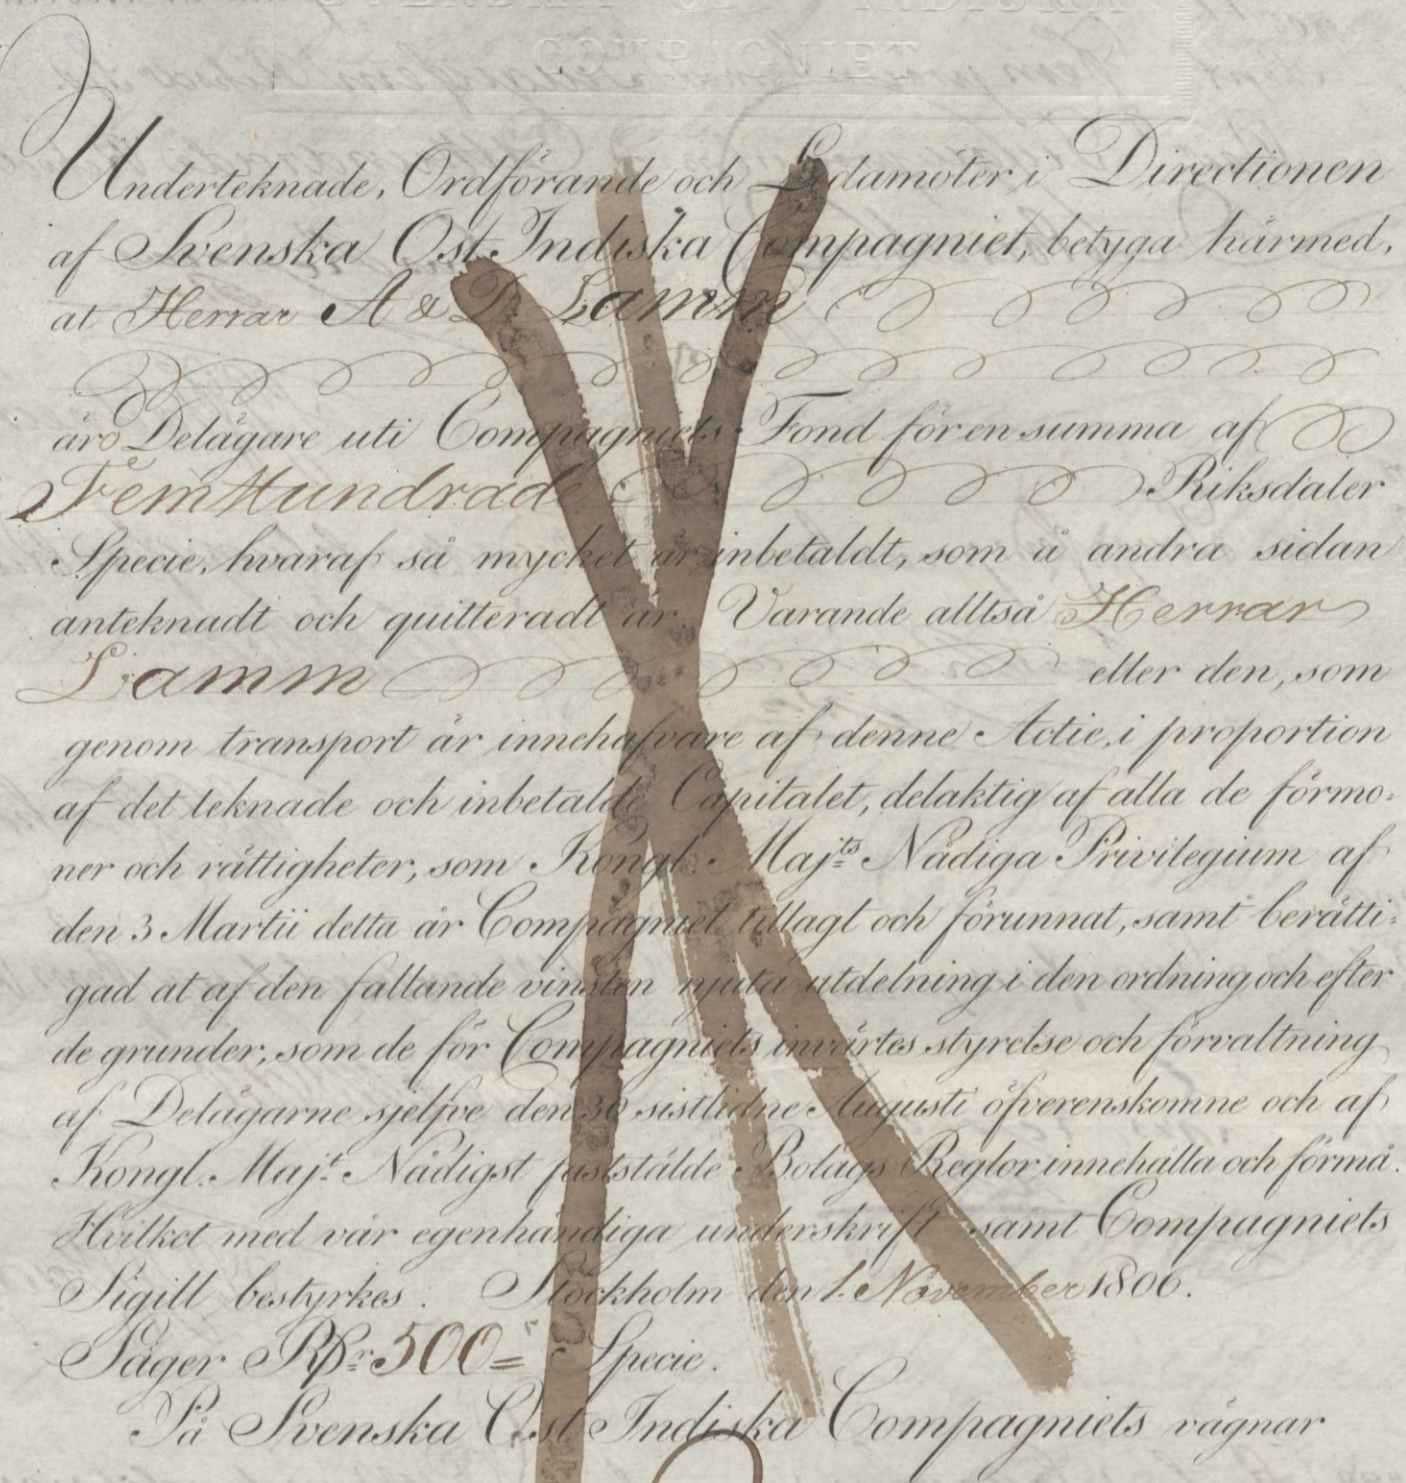 COMPAGNIET
Underteknade, Ordförande och Ledamöter i Directionen
af Svenska Ost Indiska Compagniet, betyga härmed,
at Herrar A & D Lamm
äro Delägare uti Compagniets Fond för en summa af
FemHundrade Riksdaler
Specie, hvaraf så mycket är inbetaldt, som å andra sidan
anteknadt och quitteradt är. Varande alltså Herrar
Lamm eller den, som
genom transport är innehafvare af denne Actie, i proportion
af det teknade och inbetalde Capitalet, delaktig af alla de förmo:
ner och rättigheter, som Kongl. Maj:ts Nådiga Privilegium af
den 3 Martii detta år Compagniet tillagt och förunnat, samt berätti:
gad at af den fallande vinsten njuta utdelning i den ordning och efter
de grunder, som de för Compagniets invärtes styrelse och förvaltning
af Delägarne sjelfve den 30 sistlidne Augusti öfverenskomne och af
Kongl. Maj:t Nådigst faststälde Bolags Reglor innehålla och förmå.
Hvilket med vår egenhändiga underskrift samt Compagniets
Sigill bestyrkes. Stockholm den 1. November 1806.
Säger Rdr 500= Specie.
På Svenska Ost Indiska Compagniets vägnar